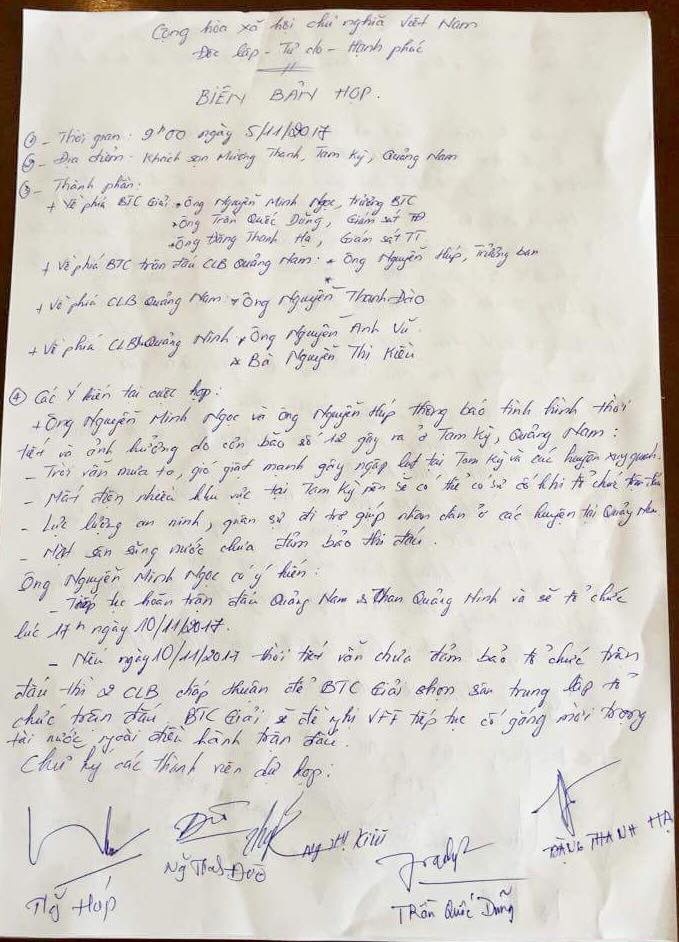 Cộng hòa xã hội chủ nghĩa Việt Nam
Độc lập - Tự do - Hạnh phúc
BIÊN BẢN HỌP.
① - Thời gian: 9h00 ngày 5/11/2017
② - Địa điểm: Khách sạn Mường Thanh, Tam Kỳ, Quảng Nam
③ - Thành phần:
+ Về phía BTC Giải * Ông Nguyễn Minh Ngọc, trưởng BTC
* Ông Trần Quốc Dũng, Giám sát TĐ
* Ông Đặng Thanh Hạ, Giám sát TT
+ Về phía BTC trận đấu CLB Quảng Nam: * Ông Nguyễn Húp, Trưởng ban
+ Về phía CLB Quảng Nam: * Ông Nguyễn Thanh Đào
+ Về phía CLB Quảng Ninh * Ông Nguyễn Anh Vũ.
* Bà Nguyễn Thị Kiều
④ Các ý kiến tại cuộc họp:
+ Ông Nguyễn Minh Ngọc và ông Nguyễn Húp thông báo tình hình thời
tiết và ảnh hưởng do cơn bão số 12 gây ra ở Tam Kỳ, Quảng Nam:
- Trời vẫn mưa to, gió giật mạnh gây ngập lụt tại Tam Kỳ và các huyện xung quanh.
- Mất điện nhiều khu vực tại Tam Kỳ nên sẽ có thể có sự cố khi tổ chức trận đấu
- Lực lượng an ninh, quân sự đi trợ giúp nhân dân ở các huyện tại Quảng Nam
- Mặt sân sũng nước chưa đảm bảo thi đấu.
Ông Nguyễn Minh Ngọc có ý kiến:
- Tiếp tục hoãn trận đấu Quảng Nam & Than Quảng Ninh và sẽ tổ chức
lúc 17h ngày 10/11/2017.
- Nếu ngày 10/11/2017 thời tiết vẫn chưa đảm bảo tổ chức trận
đấu thì 2 CLB chấp thuận để BTC Giải chọn sân trung lập tổ
chức trận đấu. BTC Giải sẽ đề nghị VFF tiếp tục cố gắng mời trọng
tài nước ngoài điều hành trận đấu.
Chữ ký các thành viên dự họp:
Ng Thị Kiều
ĐẶNG THANH HẠ
Ng Thanh Đào
Ng Húp
Trần Quốc Dũng